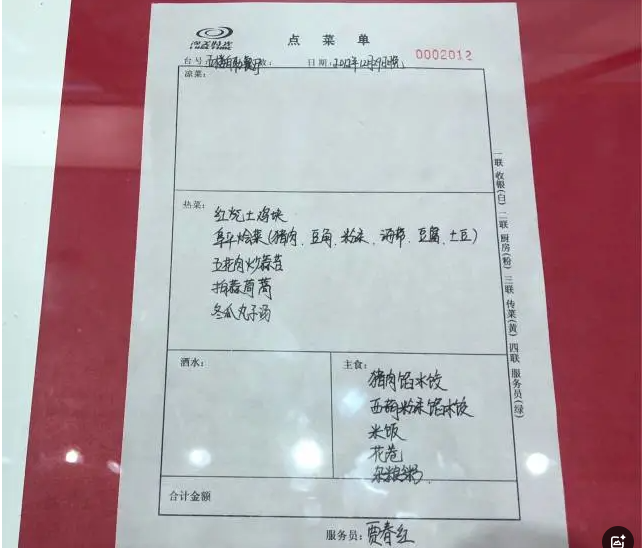 点菜单
0002012
台号: 五楼自助餐厅 数: 日期: 2012年12月29日晚
凉菜:
热菜:
红烧土鸡块
阜平烩菜(猪肉、豆角、粉条、海带、豆腐、土豆)
五花肉炒蒜苔
拍蒜茼蒿
冬瓜丸子汤
酒水:
主食:
猪肉馅水饺
西葫粉条馅水饺
米饭
花卷
杂粮粥
合计金额
服务员: 贾春红
一联 收银(白) 二联 厨房(粉) 三联 传菜(黄) 四联 服务员(绿)